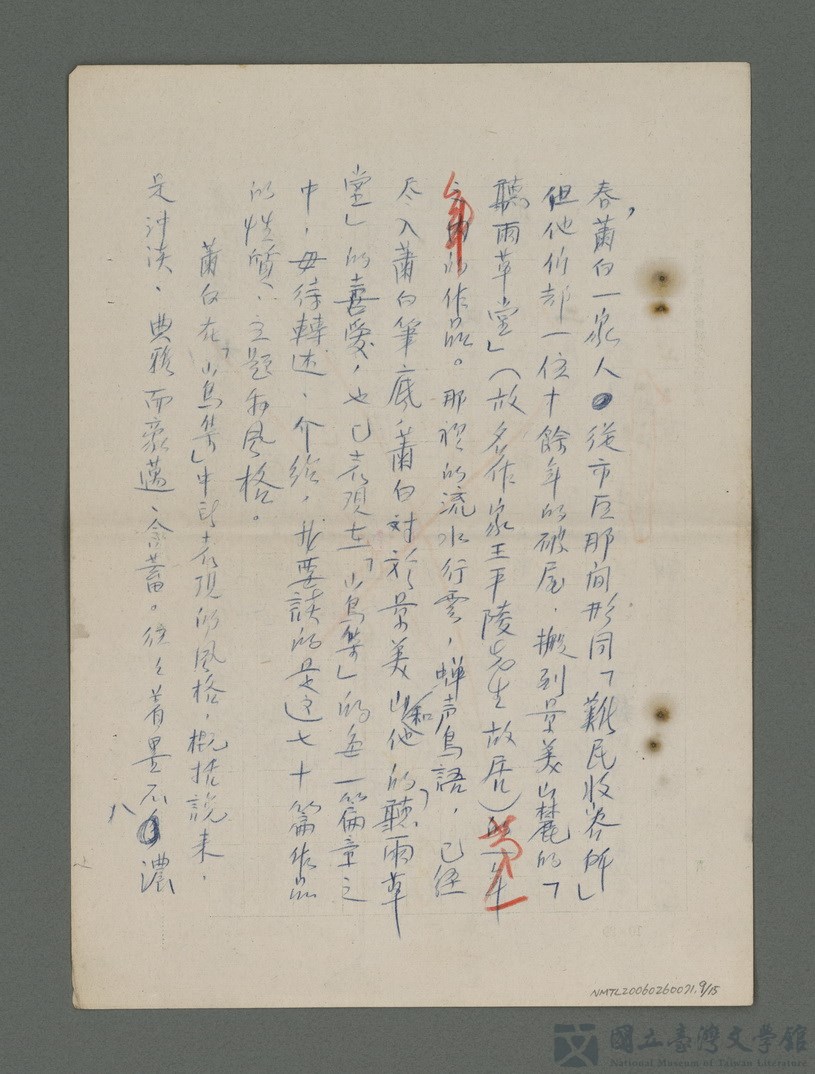 春,蕭白一家人從市區那间形同「難民收容所」
但他们却一住十餘年的破屋,搬到景美山麓的「
聽雨草堂」(故名作家王平陵先生故居)
的作品。那裡的流水行雲,蝉声鳥語,已経
尽入蕭白筆底,蕭白对於景美山和他的「聽雨草
堂」的喜愛,也已表現在「山鳥集」的每一篇章之
中,毋待轉述、介紹,我要談的是这七十篇作品
的性質、主題和風格。
蕭白在「山鳥集」中所表現的風格,概括說来,
是冲淡、典雅而豪邁、含蓄。往々着墨不濃
八
NMTL20060260071.9/15
國立臺灣文學館
National Museum of Taiwan Literature